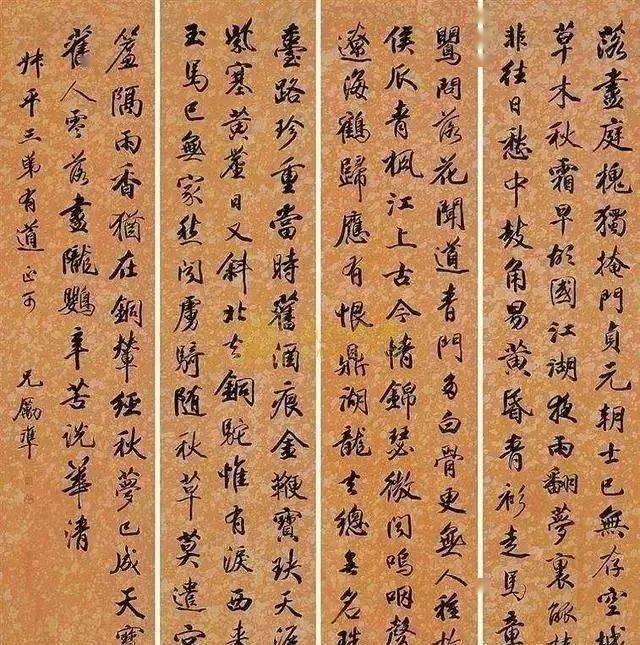 落盡庭槐獨掩門貞元朝士已無存空城
草木秋霜早故國江湖夜雨翻夢裏觚棱
非往日愁中鼓角易黃昏青衫走馬章
鸎問落花聞道青門多白骨更無人種故
侯瓜青楓江上古今情錦瑟微聞嗚咽聲
遼海鶴歸應有恨鼎湖龍去總無名珠
臺路珍重當時舊酒痕金鞭寶玦天涯
紫塞黃蘆日又斜北去銅駝惟有淚西來
玉馬已無家愁聞虜騎隨秋草莫遣宮
簾隔雨香猶在銅輦經秋夢已成天寶
舊人零落盡隴鸚辛苦說華清
平三弟有道正可
兄勵準